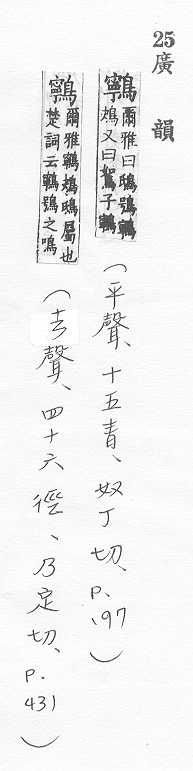 25廣韻
鸋爾雅曰鴟鴞鸋
鴂又曰鴽子鸋
(平聲、十五青、奴丁切、p.197)
鸋爾雅鸋鴂鴟屬也
楚詞云鸋鴞之鳴
(去聲、四十六徑、乃定切、p.431)